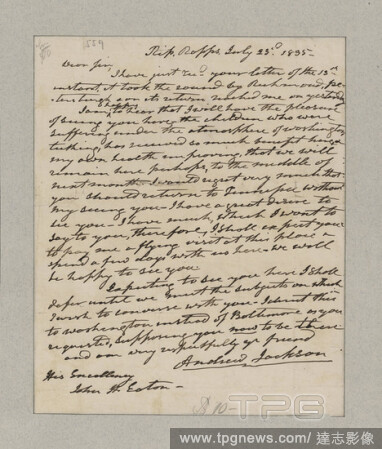 1559
Rip, Rapps, July 23.d 1835-
Dear Sir,
I have just recd. your letter of the 13th
instant, it took the round by Richmond,
on its return, reached me on yesterday
I am to hear that I will have the pleasure
of seeing you here, the children who were
suffering under the atmosphere of washington
teething has received so much benefit here &
my own health improving, that we will
remain here perhaps, to the middle of
next month. I would regret very much that
you should return to Tennessee without
my seeing you - I have a great desire to
see you - I have much, which I want to
say to you, therefore, I shall expect you
to pay me a flying visit at this place &
spend a few days with us here - we will
be happy to see you
Expecting to see you here I shall
defer until we meet the subjects on which
I wish to converse with you - I direct this
to washington instead of Baltimore as you
requested, supposing you now to be there
and am very respectfully yr friend
Andrew Jackson
His Excellency
John H. Eaton -
$10-
TPG
www.tpgnews.com / 達志影像